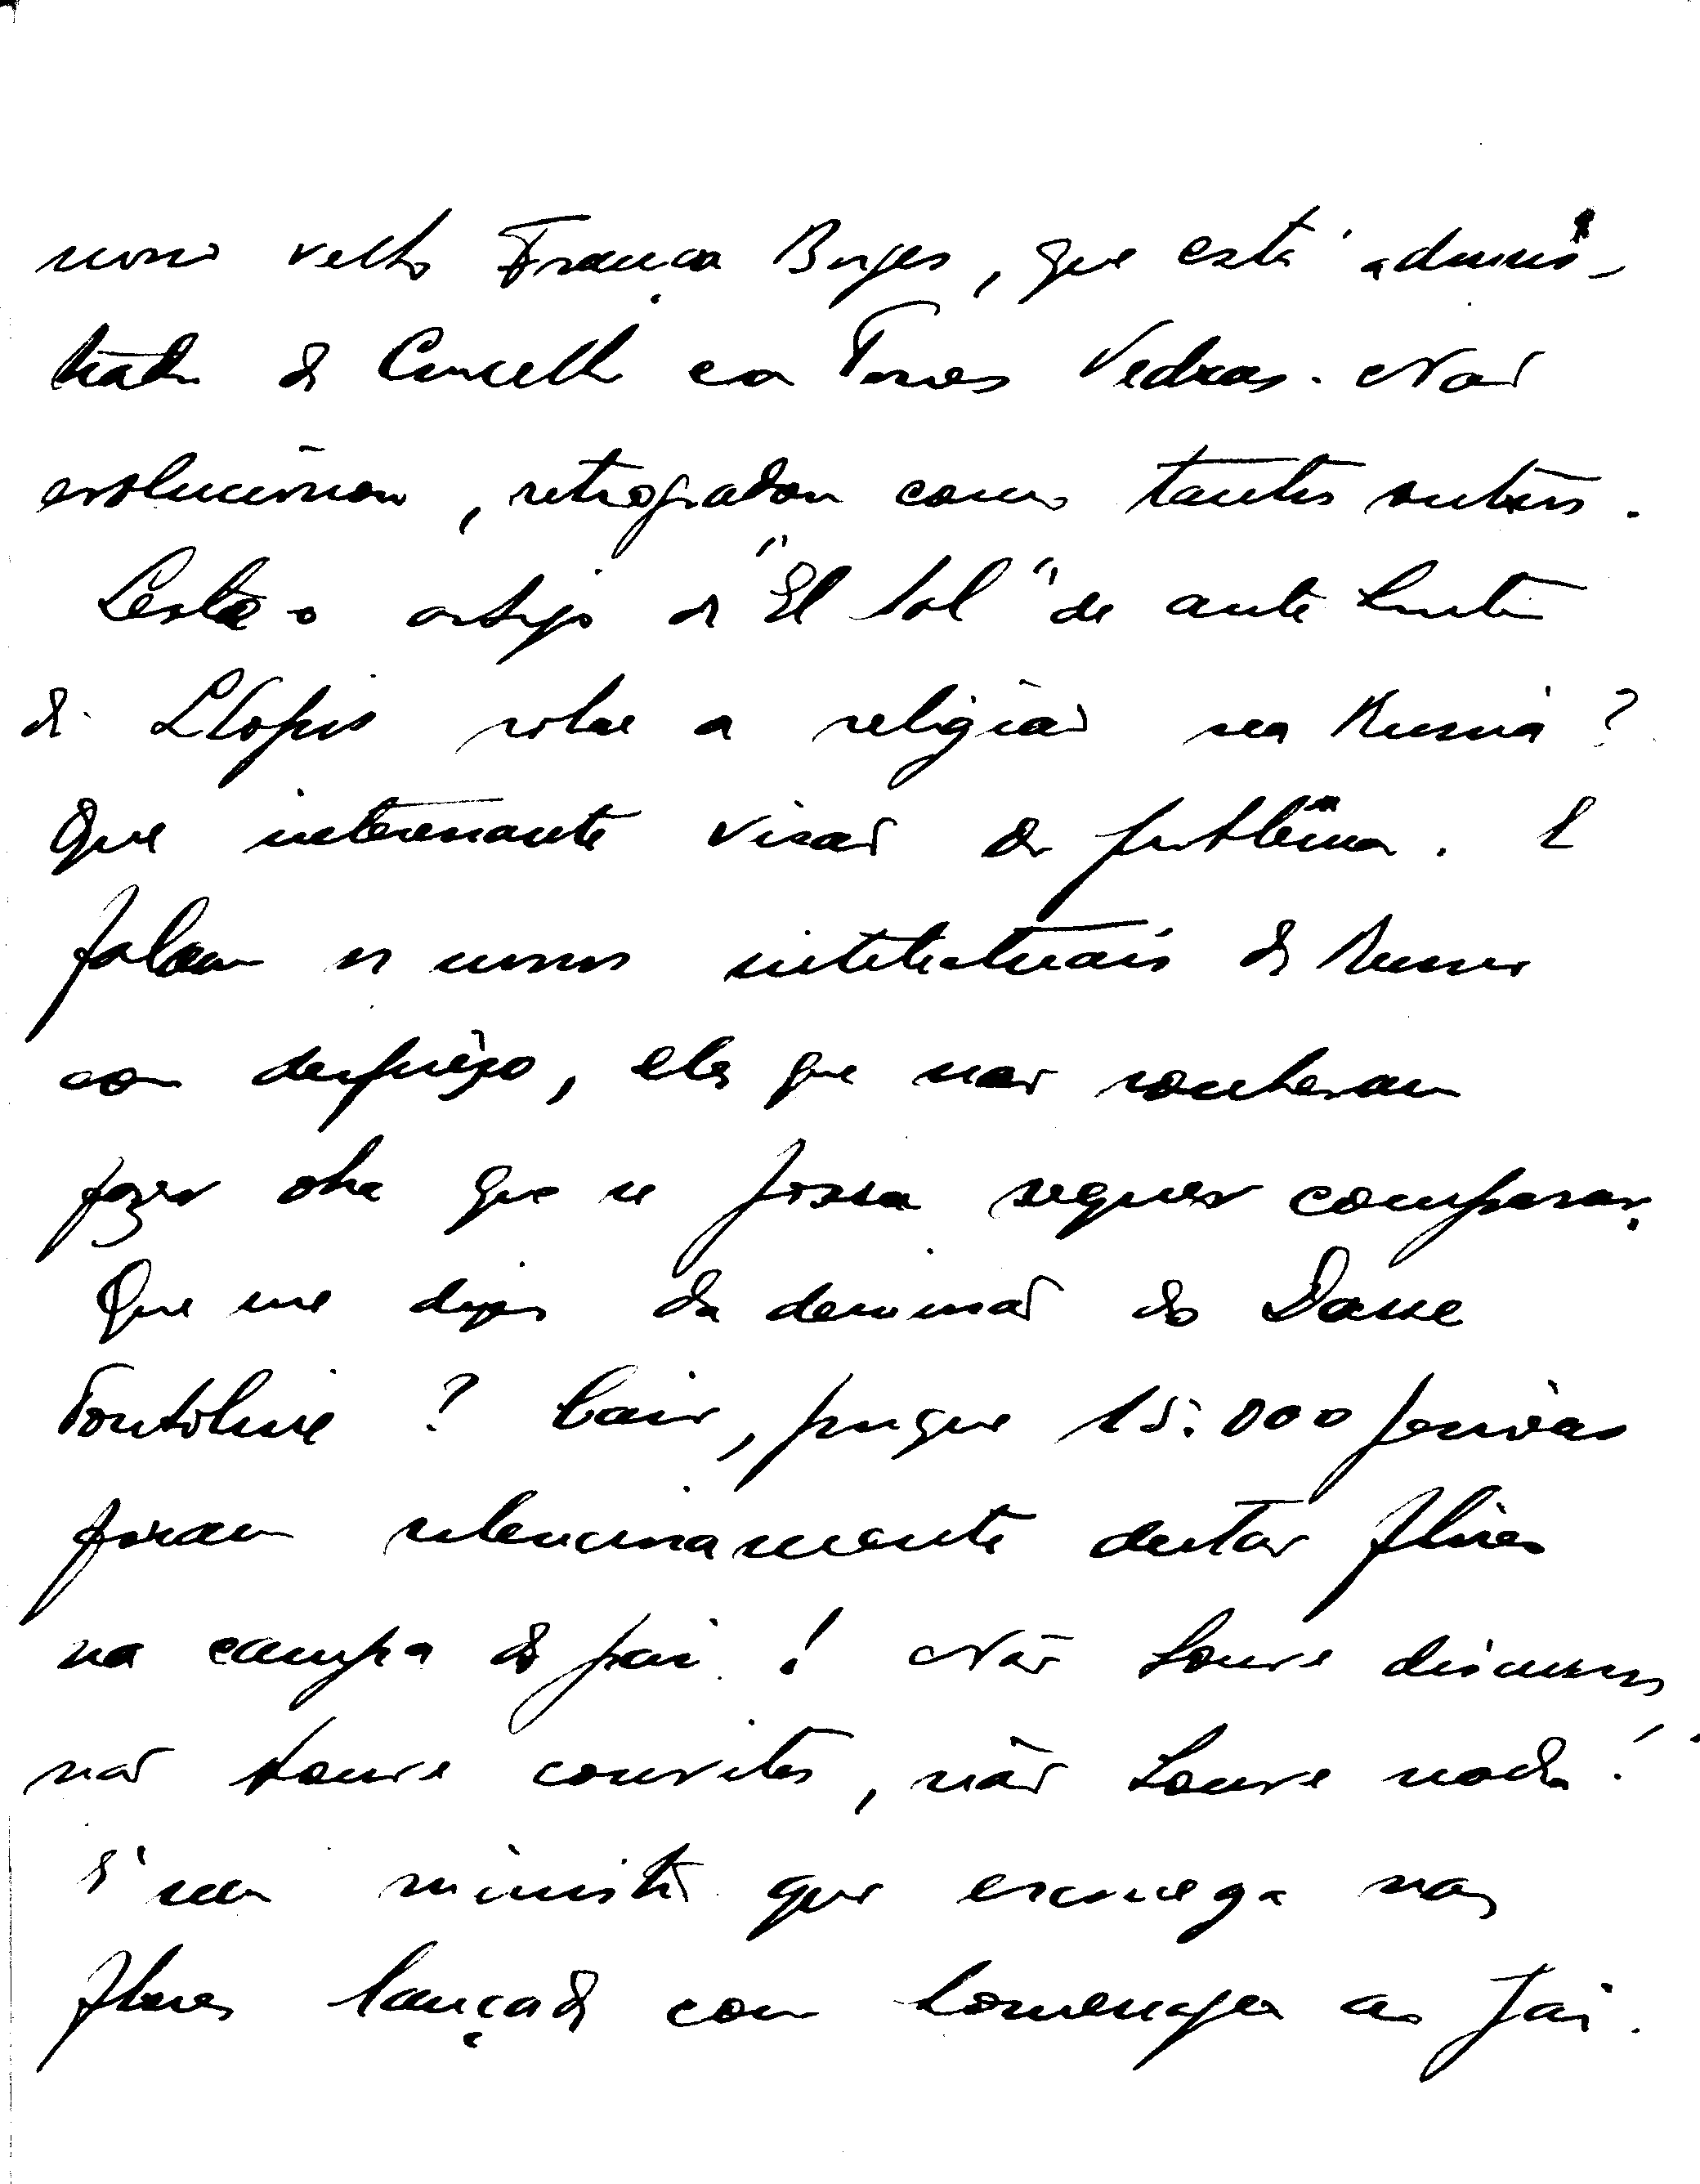 nosso velho França Borges, que está adminis-
trador do Concelho em Torres Vedras. Não
evolucionou, retrogradou como tantos outros.
Leste o artigo do "El Sol" de ante hontem
de Llopis sobre a religião na Russia?
Que interessante visão do problêma. E
falam os nossos intelectuais da Russia
com desprêzo, eles que não souberam
fazer obra que se possa sequer comparar.
Que me dizes da demissão do Dause
? Caiu, porque 15.000 pessôas
foram silenciosamente deitar flôres
na campa do pai! Não houve discursos,
não houve convites, não houve nada!
É um ministro que escorrega nas
flores lançadas com homenagem ao pai.